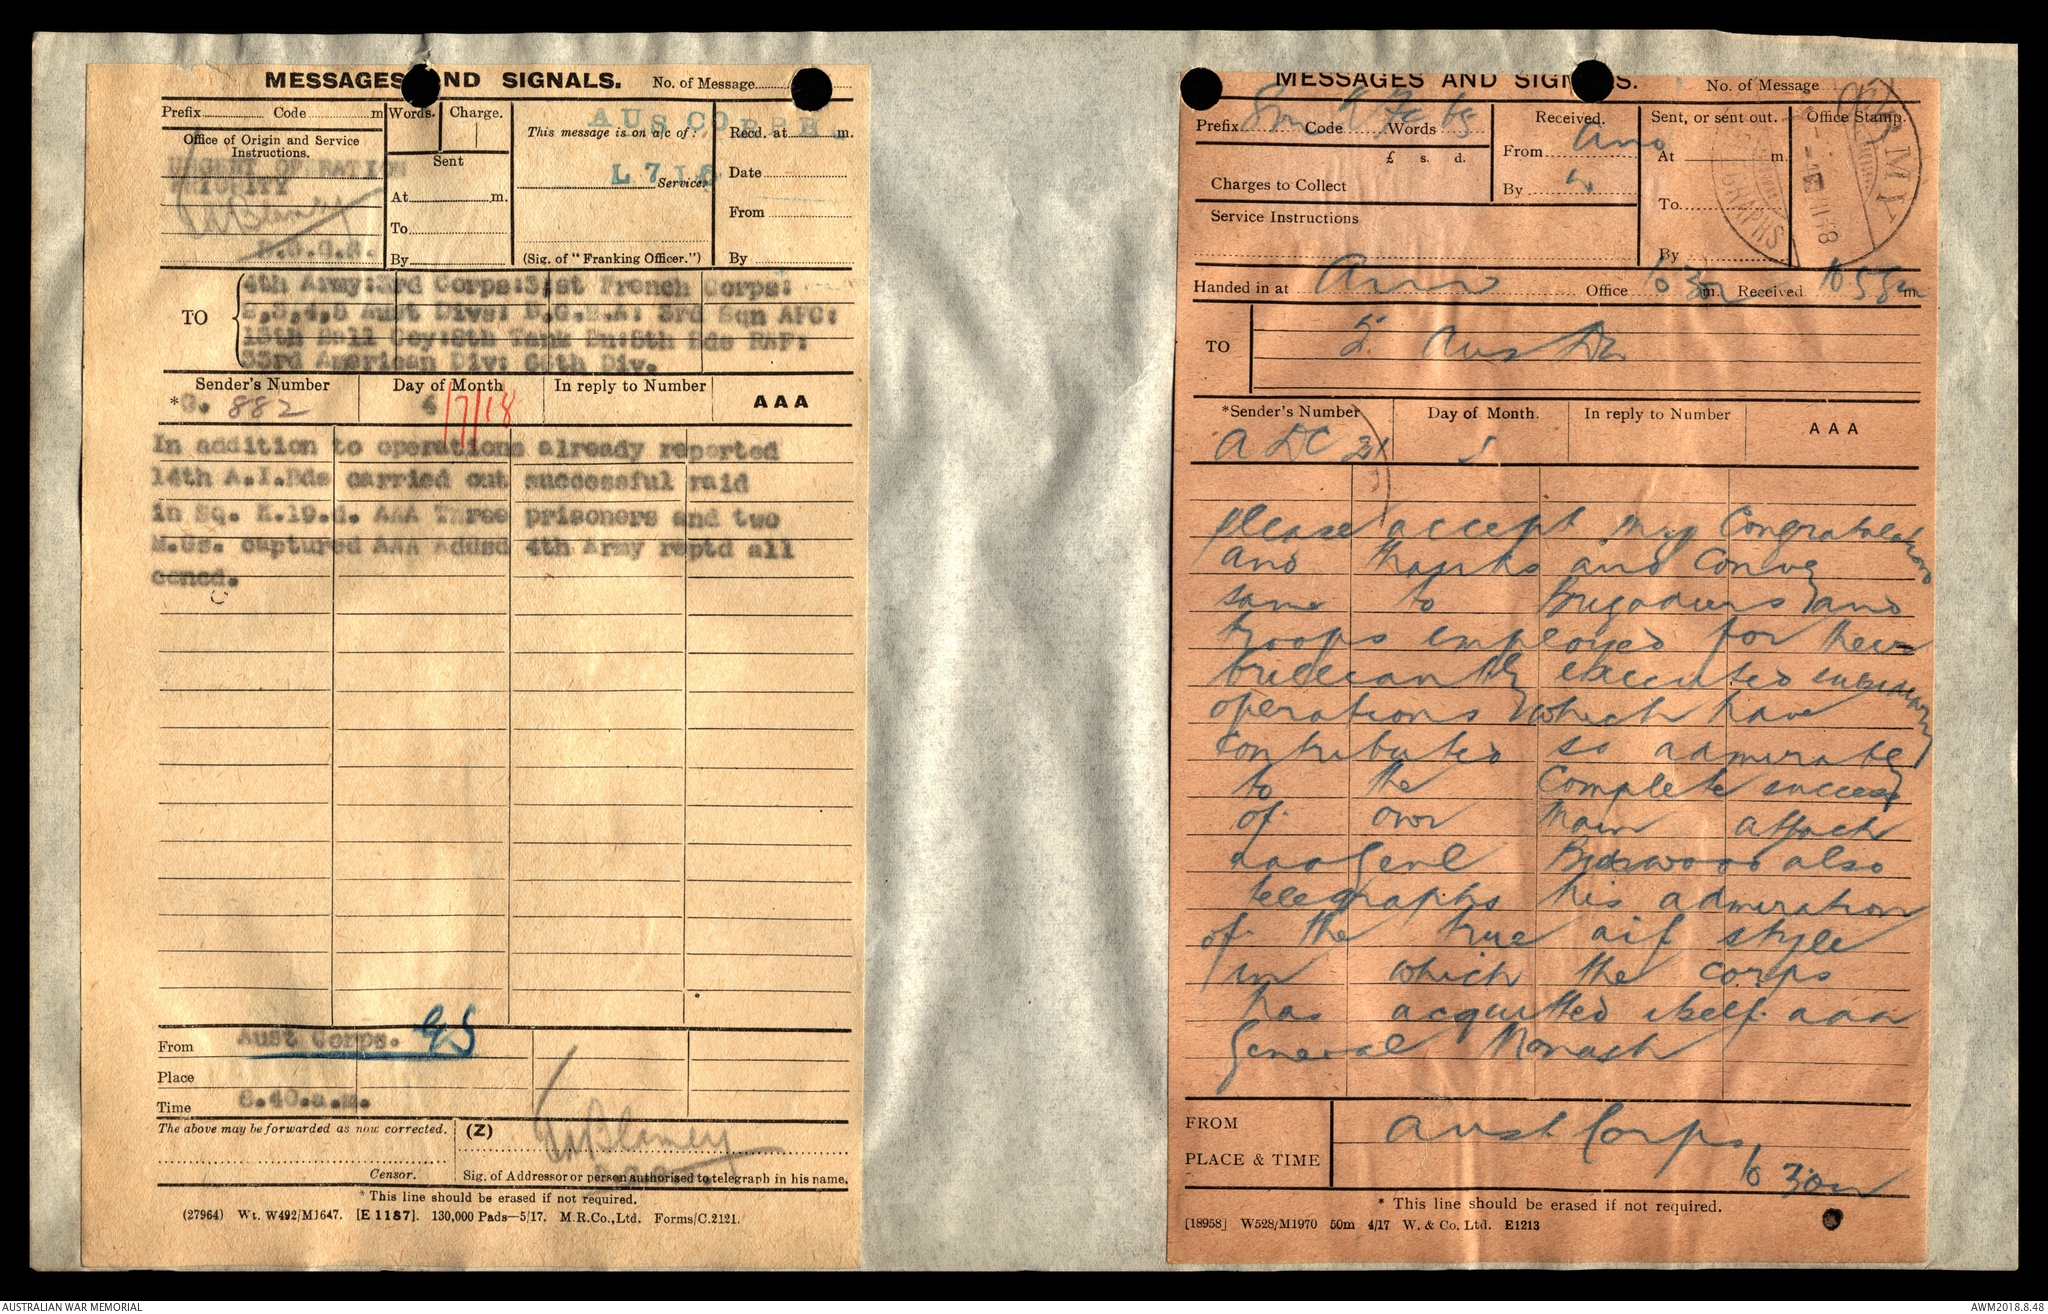 MESSAGES AND SIGNALS. No. of Message
Prefix Code m Words. Charge.
Office of Origin and Service
Instructions.
URGENT OPERATION
PRIORITY
TABlamey
B.G.G.S.
Sent
At m.
To
By
This message is on a/c of:
AUSCORPS
L 716
Service
(Sig. of "Franking Officer.")
Recd. at m.
Date
From
By
TO
4th Army:3rd Corps:31st French Corps:
2,3,4,5 Aust Divs: B.G.R.A: 3rd Sqn AFC:
13th Ball Coy:8th Tank Bn:8th Bde RAF:
33rd American Div: 66th Div.
Sender's Number Day of Month In reply to Number AAA
*G. 882 4/7/18
In addition to operations already reported
14th A.I.Bde carried out successful raid
in Sq. K.19.d. AAA Three prisoners and two
M.Gs. captured AAA Added 4th Army reptd all
concd.
From Aust Corps. GS
Place
Time 8.40.a.m.
The above may be forwarded as now corrected. (Z) TABlamey
Censor. Sig. of Addressor or person authorised to telegraph in his name.
* This line should be erased if not required.
(27964) Wt. W492/M1647. [E 1187]. 130,000 Pads—5/17. M.R.Co.,Ltd. Forms/C.2121.
MESSAGES AND SIGNALS. No. of Message
Prefix Sm Code Words 68
£ s. d.
Charges to Collect
Service Instructions
Received.
From
By
Sent, or sent out.
At m.
To
By
Office Stamp.
ARMY
TELEGRAPHS
Handed in at Office 10 30 m. Received 10 58 m.
TO 5 Aust Div
*Sender's Number Day of Month. In reply to Number AAA
ADC 31 5
please accept my Congratulations
and thanks and convey
same to Brigadiers and
troops employed for their
brilliantly executed subsidiary
operations which have
contributed so admirably
to the complete success
of our main attack
aaa Genl Birdwood also
telegraphs his admiration
of the true aif style
in which the corps
has acquitted itself aaa
General Monash
FROM Aust Corps
PLACE & TIME 10 30
* This line should be erased if not required.
[18958] W528/M1970 50m 4/17 W. & Co. Ltd. E1213
AUSTRALIAN WAR MEMORIAL AWM2018.8.48